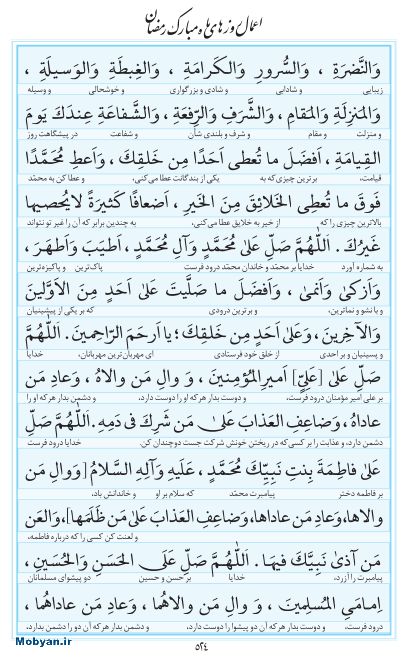 اعمال روزهای ماه مبارک رمضان
وَالنَّضرَةِ ، وَالسُّرورِ وَالکَرامَةِ ، وَالغِبطَةِ وَالوَسیلَةِ ،
زیبایی و شادابی و شادی و بزرگواری و خوشحالی و وسیله
وَالمَنزِلَةِ وَالمَقامِ ، وَالشَّرَفِ وَالرِّفعَةِ ، وَالشَّفاعَةِ عِندَكَ یَومَ
و منزلت و مقام و شرف و بلندی شأن و شفاعت در پیشگاهت روز
القِیامَةِ ، اَفضَلَ ما تُعطی اَحَدًا مِن خَلقِكَ ، وَاَعطِ مُحَمَّدًا
قیامت، برترین چیزی که به یکی از بندگانت عطا می‌کنی، و عطا کن به محمّد
فَوقَ ما تُعطِی الخَلائِقَ مِنَ الخَیرِ ، اَضعافًا کَثیرَةً لایُحصیها
بالاترین چیزی را که از خیر به خلایق عطا می‌کنی، به چندین برابر که آن را غیر تو نتواند
غَیرُكَ . اَللّٰهُمَّ صَلِّ عَلیٰ مُحَمَّدٍ وَآلِ مُحَمَّدٍ ، اَطیَبَ وَاَطهَرَ ،
به شماره آورد خدایا بر محمّد و خاندان محمّد درود فرست پاک‌ترین و پاکیزه‌ترین
وَاَزکیٰ وَاَنمیٰ ، وَاَفضَلَ ما صَلَّیتَ عَلیٰ اَحَدٍ مِنَ الاَوَّلینَ
و بانشو و نماترین، و برترین درودی که بر یکی از پیشینیان
وَالآخِرینَ ، وَعَلیٰ اَحَدٍ مِن خَلقِكَ ؛ یا اَرحَمَ الرّاحِمینَ . اَللّٰهُمَّ
و پسینیان و بر احدی از خلق خود فرستادی ای مهربان‌ترین مهربانان، خدایا
صَلِّ عَلیٰ [عَلِیٍّ] اَمیرِالمُؤمِنینَ ، وَ والِ مَن والاهُ ، وَعادِ مَن
بر علی امیر مؤمنان درود فرست، و دوست بدار هر که او را دوست دارد، و دشمن بدار هر که او را
عاداهُ ، وَضاعِفِ العَذابَ عَلیٰ مَن شَرِكَ فی دَمِهِ . اَللّٰهُمَّ صَلِّ
دشمن دارد، و عذابت را بر کسی که در ریختن خونش شرکت جست دوچندان کن. خدایا درود فرست
عَلیٰ فاطِمَةَ بِنتِ نَبِیِّكَ مُحَمَّدٍ ، عَلَیهِ وَآلِهِ السَّلامُ [وَوالِ مَن
بر فاطمه دختر پیامبرت محمّد که سلام بر او و خاندانش باد،
والاها، وَعادِ مَن عاداها، وَضاعِفِ العَذابَ عَلیٰ مَن ظَلَمَها]، وَالعَن
و لعنت کن کسی را که درباره فاطمه،
مَن آذیٰ نَبِیَّكَ فیها . اَللّٰهُمَّ صَلِّ عَلَی الحَسَنِ وَالحُسَینِ ،
پیامبرت را آزرد، خدایا بر حسن و حسین دو پیشوای مسلمانان
اِمامَیِ المُسلِمینَ ، وَ والِ مَن والاهُما ، وَعادِ مَن عاداهُما ،
درود فرست، و دوست بدار هر که آن دو پیشوا را دوست دارد، و دشمن بدار هر که آن دو را دشمن بدارد.
۵۲۴
Mobyan.ir